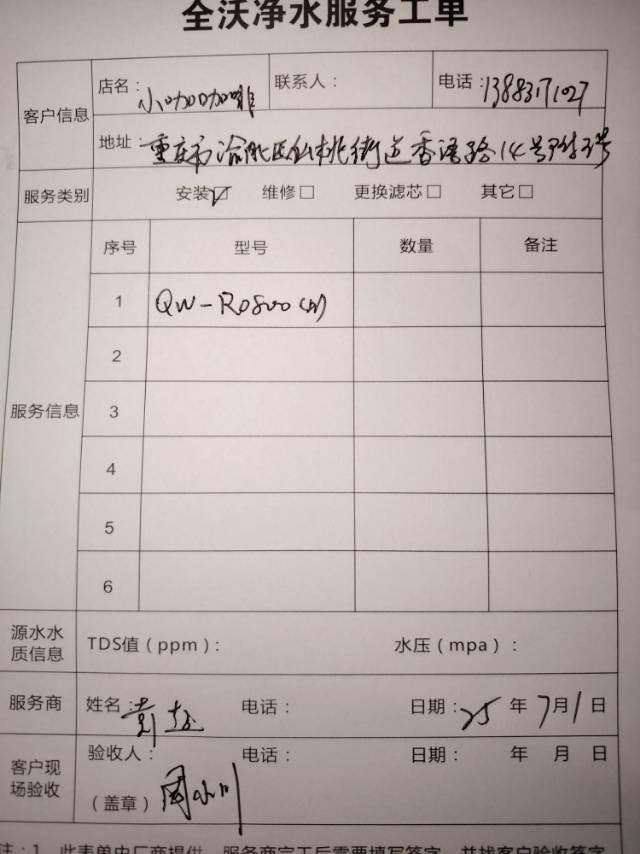 全沃净水服务工单
客户信息
店名：小咖咖啡 联系人： 电话：13883171027
地址：重庆市渝北区仙桃街道香语路14号附3号
服务类别 安装☑ 维修□ 更换滤芯□ 其它□
服务信息
序号 型号 数量 备注
1 QW-RO800
2
3
4
5
6
源水水质信息 TDS值（ppm）： 水压（mpa）：
服务商 姓名： 电话： 日期：25 年 7月1日
客户现场验收
验收人： 电话： 日期： 年 月 日
（盖章）周小川
注：1、此表单由厂商提供，服务商完工后需要填写签字，并找客户验收签字